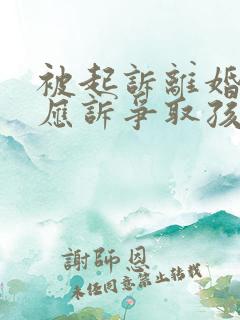 被起訴離婚
應訴爭取孩
謝師恩
未任同意禁止转载